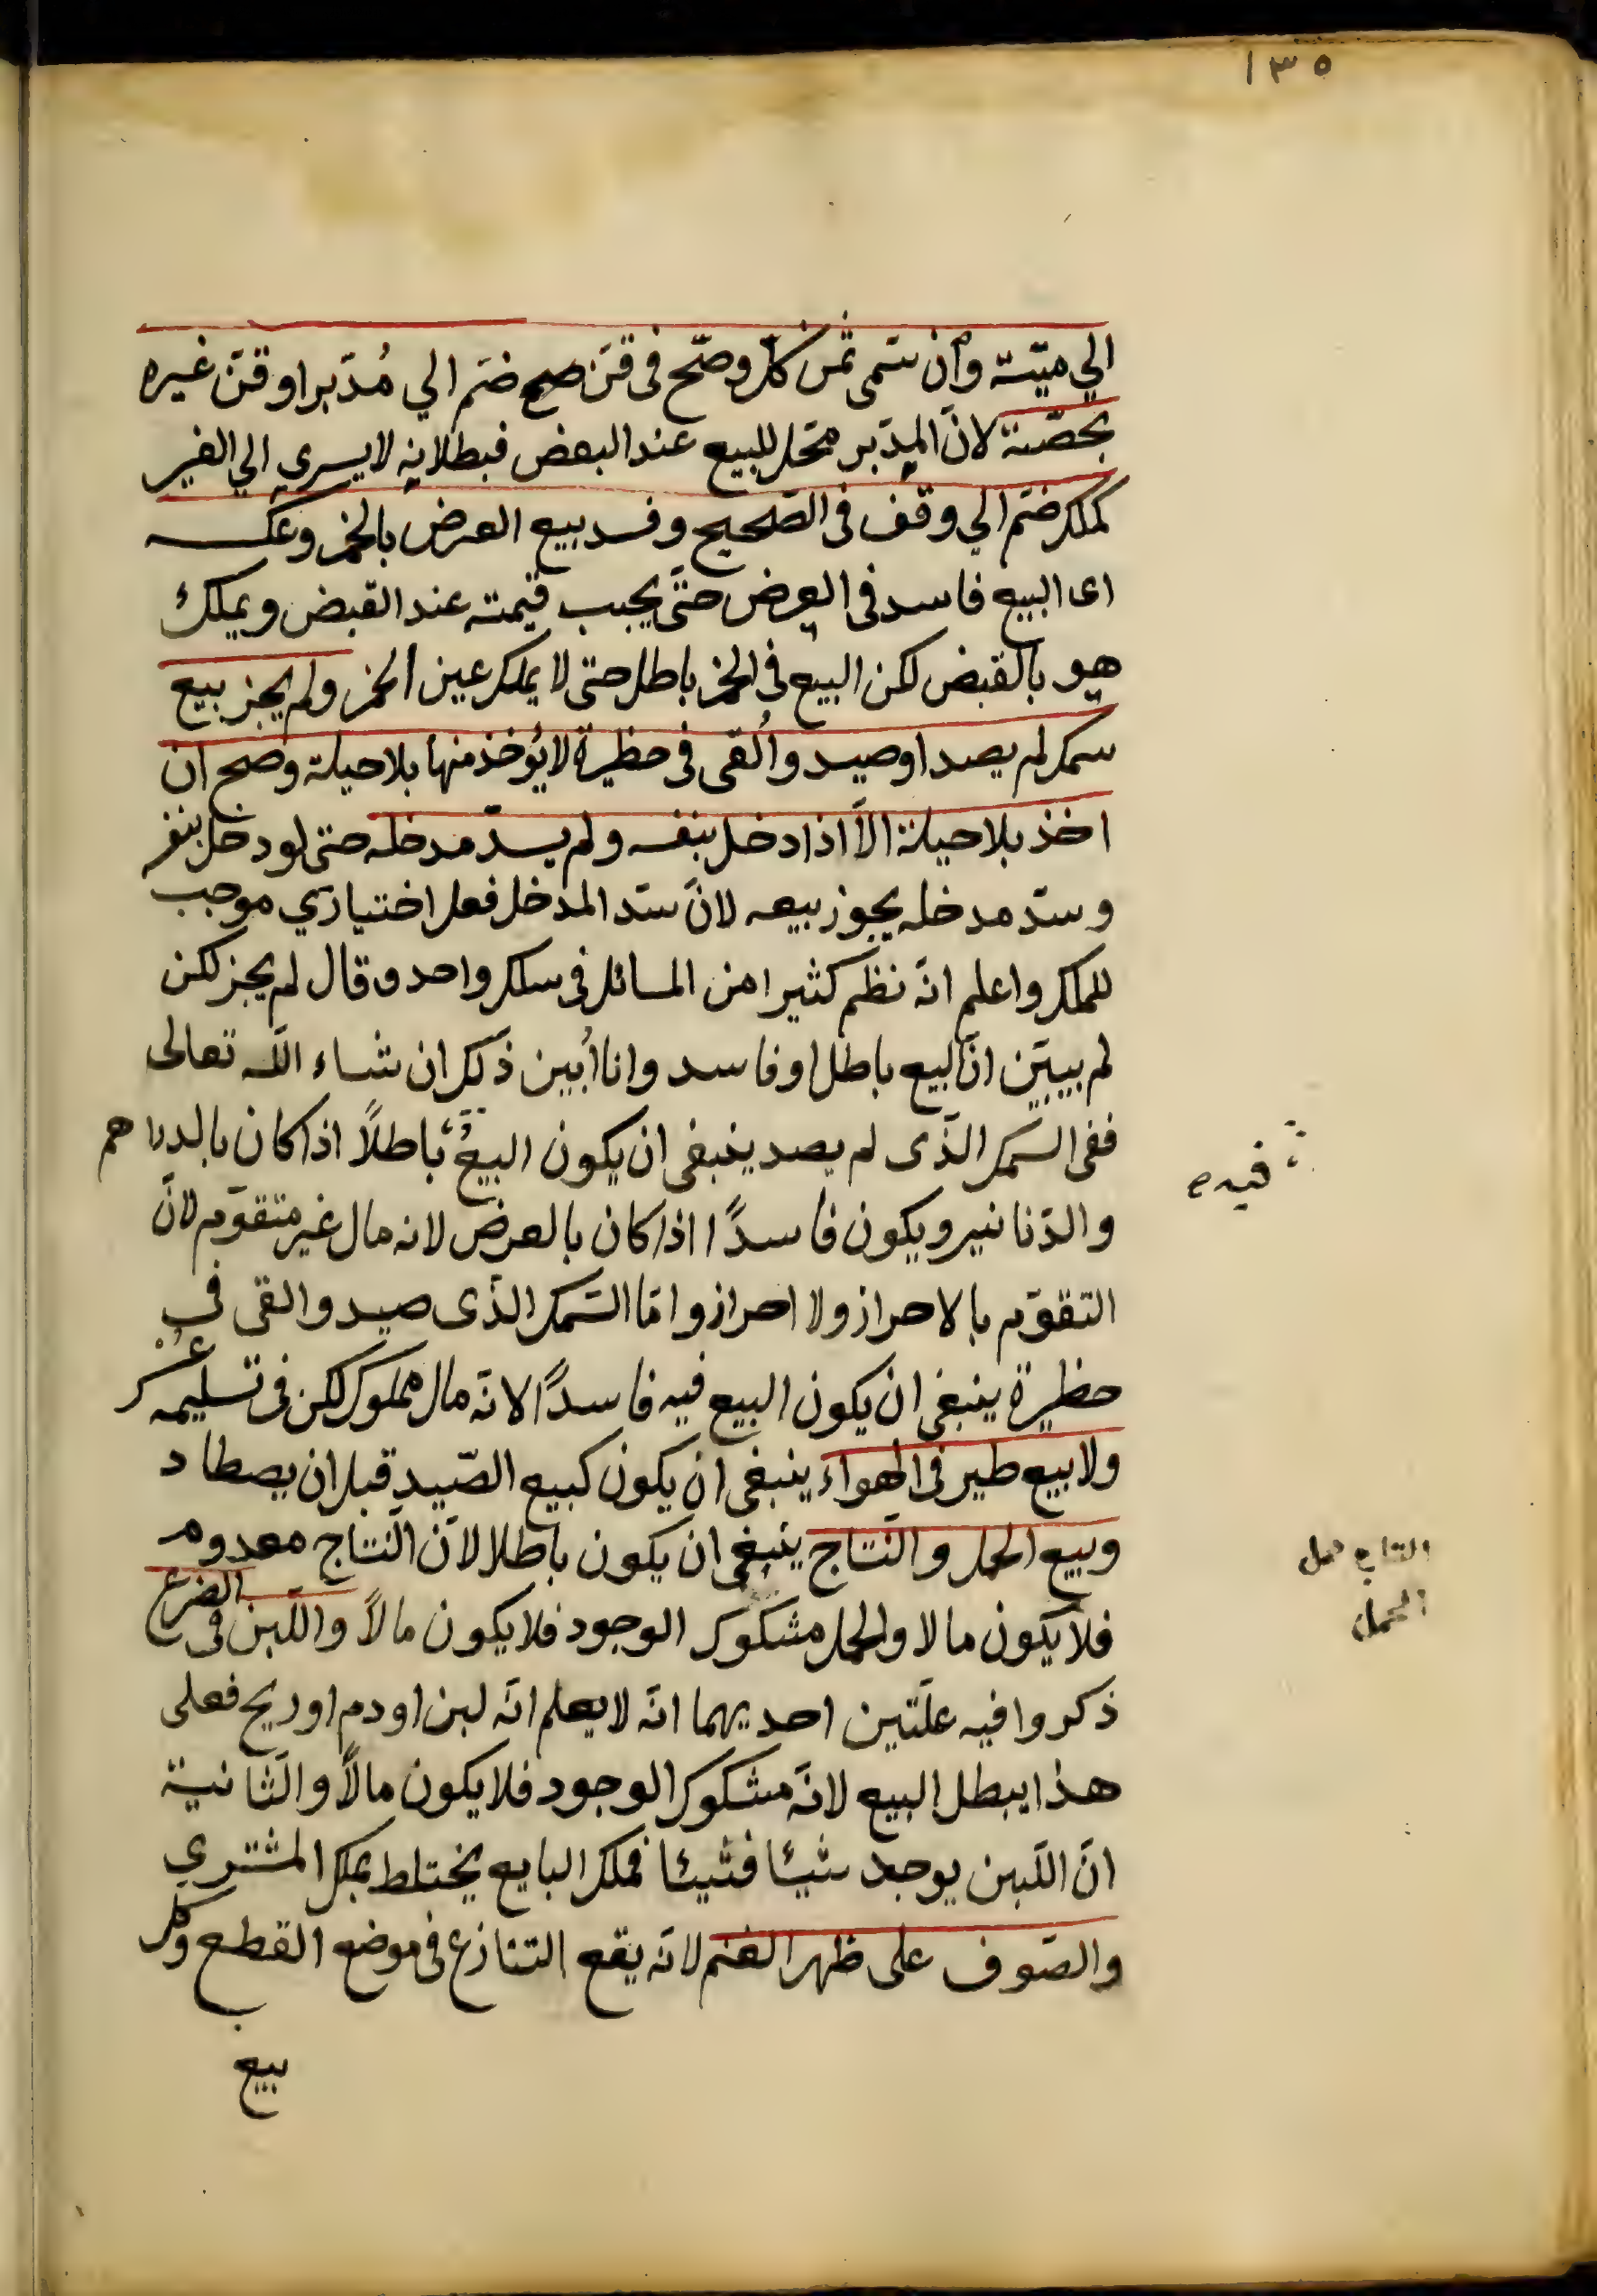 ١٣٥
الي ميّتة وان سمّى ثمن كلّ وصّح فى قنّ صح ضمّ الي مُدّبر او قنّ غيره
بحصّته لانّ المدّبر محّل للبيع عند البعض فبطلانه لا يسري الي الغير
كملك ضمّ الي وقف فى الصّحيح وفسد بيع العرض بالخمر وعكسه
اى البيع فاسد فى العرض حتّى يجب قيمته عند القبض ويملك
هو بالقبض لكن البيع فى الخمر باطل حتى لا يملك عين الخمر ولم يجز بيع
سمك لم يصد او صيد وأُلقى فى حظيرة لا يُؤخذ منها بلا حيلة وصح ان
اخذ بلا حيلة الّا اذا دخل بنفسه ولم يسدّ مدخله حتى لو دخل بنفسه
وسدّ مدخله يجوز بيعه لانّ سدّ المدخل فعل اختياري موجب
للملك واعلم انّه نظم كثيرا من المسائل فى سلك واحد وقال لم يجز لكن
لم يبيّن انّ البيع باطل او فاسد وانا أبين ذلك ان شاء اللّه تعالى
ففى السّمك الذّى لم يصد ينبغى ان يكون البيعُ باطلاً اذا كان بالدراهم
فيه ص
والدّنانير ويكون فاسدًا اذا كان بالعرض لانه مال غير متقوّم لانّ
التقوّم بالاحراز ولا احراز وامّا السّمك الذّى صيد والقى فى
حظيرة ينبغى ان يكون البيع فيه فاسدًا لانّه مال مملوك لكن فى تسليمه عُسر
ولا بيع طير فى الهواء ينبغى ان يكون كبيع الصّيد قبل ان يصطاد
وبيع الحمل والنّتاج ينبغى ان يكون باطلا لانّ النّتاج معدوم
النتاج حمل
الحمل
فلا يكون مالا والحمل مشكوك الوجود فلا يكون مالاً واللّبن فى الضرع
ذكروا فيه علّتين احديهما انّه لا يعلم انّه لبن او دم او ريح فعلى
هذا يبطل البيع لانّه مشكوك الوجود فلا يكون مالاً والثّانية
انّ اللّبن يوجد شيئا فشيئا فملك البايع يختلط بملك المشتري
والصّوف على ظهر الغنم لانّه يقع التنازع فى موضع القطع وكل
بيع